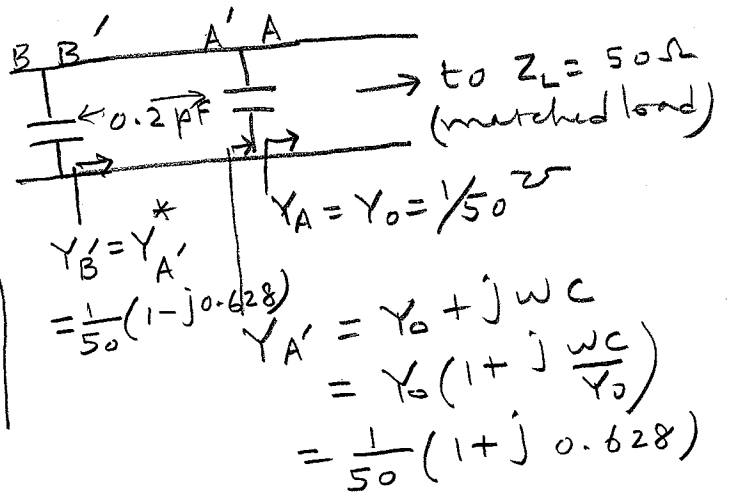 B B′ A′ A
← 0.2 pF →
→ to Z_L = 50Ω
(matched load)
Y_A = Y_0 = 1/50 ℧
Y_B′ = Y*_A′
= 1/50 (1-j0.628)
Y_A′ = Y_0 + jωC
= Y_0 (1 + j ωC/Y_0)
= 1/50 (1 + j 0.628)